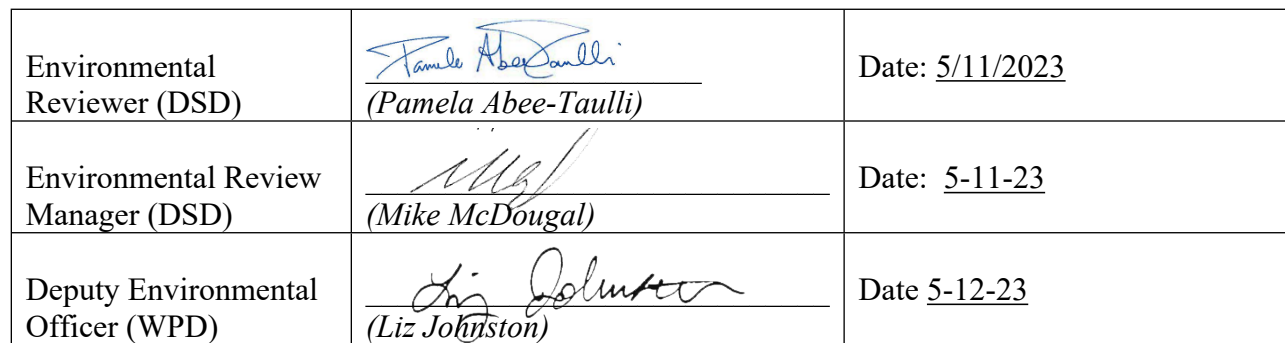 Environmental
Reviewer (DSD)
Pamela Abee-Taulli
(Pamela Abee-Taulli)
Date: 5/11/2023
Environmental Review
Manager (DSD)
(Mike McDougal)
Date: 5-11-23
Deputy Environmental
Officer (WPD)
Liz Johnston
(Liz Johnston)
Date 5-12-23